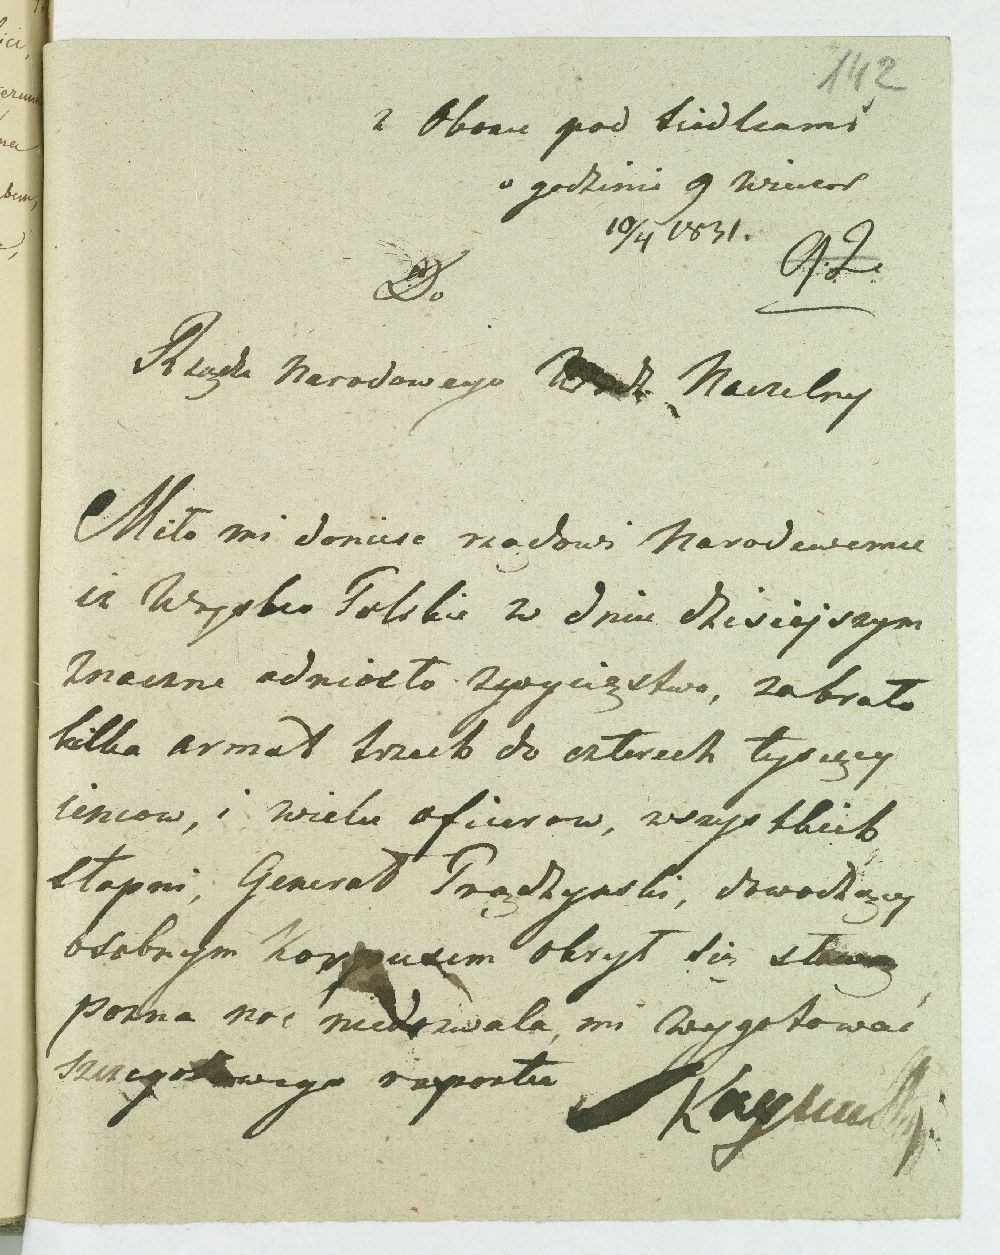 142
z Obozu pod Siedlcami
o godzinie 9 wieczor
10/4 1831.
Do
Rządu Narodowego Wodz Naczelny
Miło mi donieść rządowi Narodowemu
iż Woysko Polskie w dniu dzisiejszym
znaczne odniosło zwycięstwo, zabrało
kilka armat trzech do czterech tysięcy
iencow, i wielu oficerow, wszystkich
stopni, Generał Prądzyński, dowodzący
osobnym Korpusem okrył się sławą
pozna noc niedozwala, mi wygotować
szczegołowego raportu